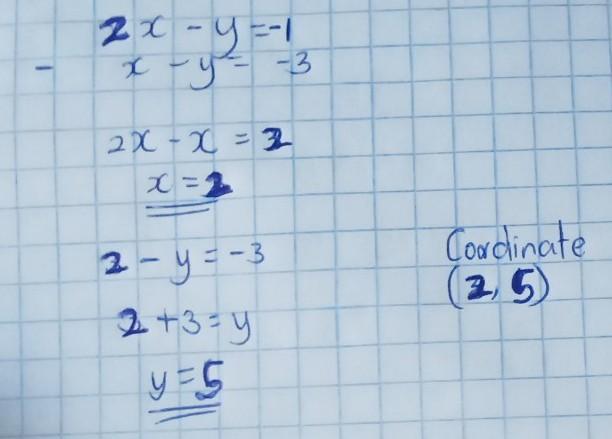 2x - y = -1
- x - y = -3
2x - x = 2
x = 2
2 - y = -3
2 + 3 = y
y = 5
Coordinate
(2, 5)